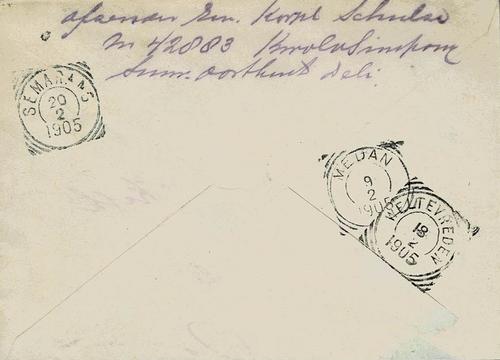 afzender Em. Korpl Schulze
N 42883 KwalaSimpang
Sum. oostkust Deli
SEMARANG
20
2
1905
MEDAN
9
2
1905
WELTEVREDEN
18
2
1905